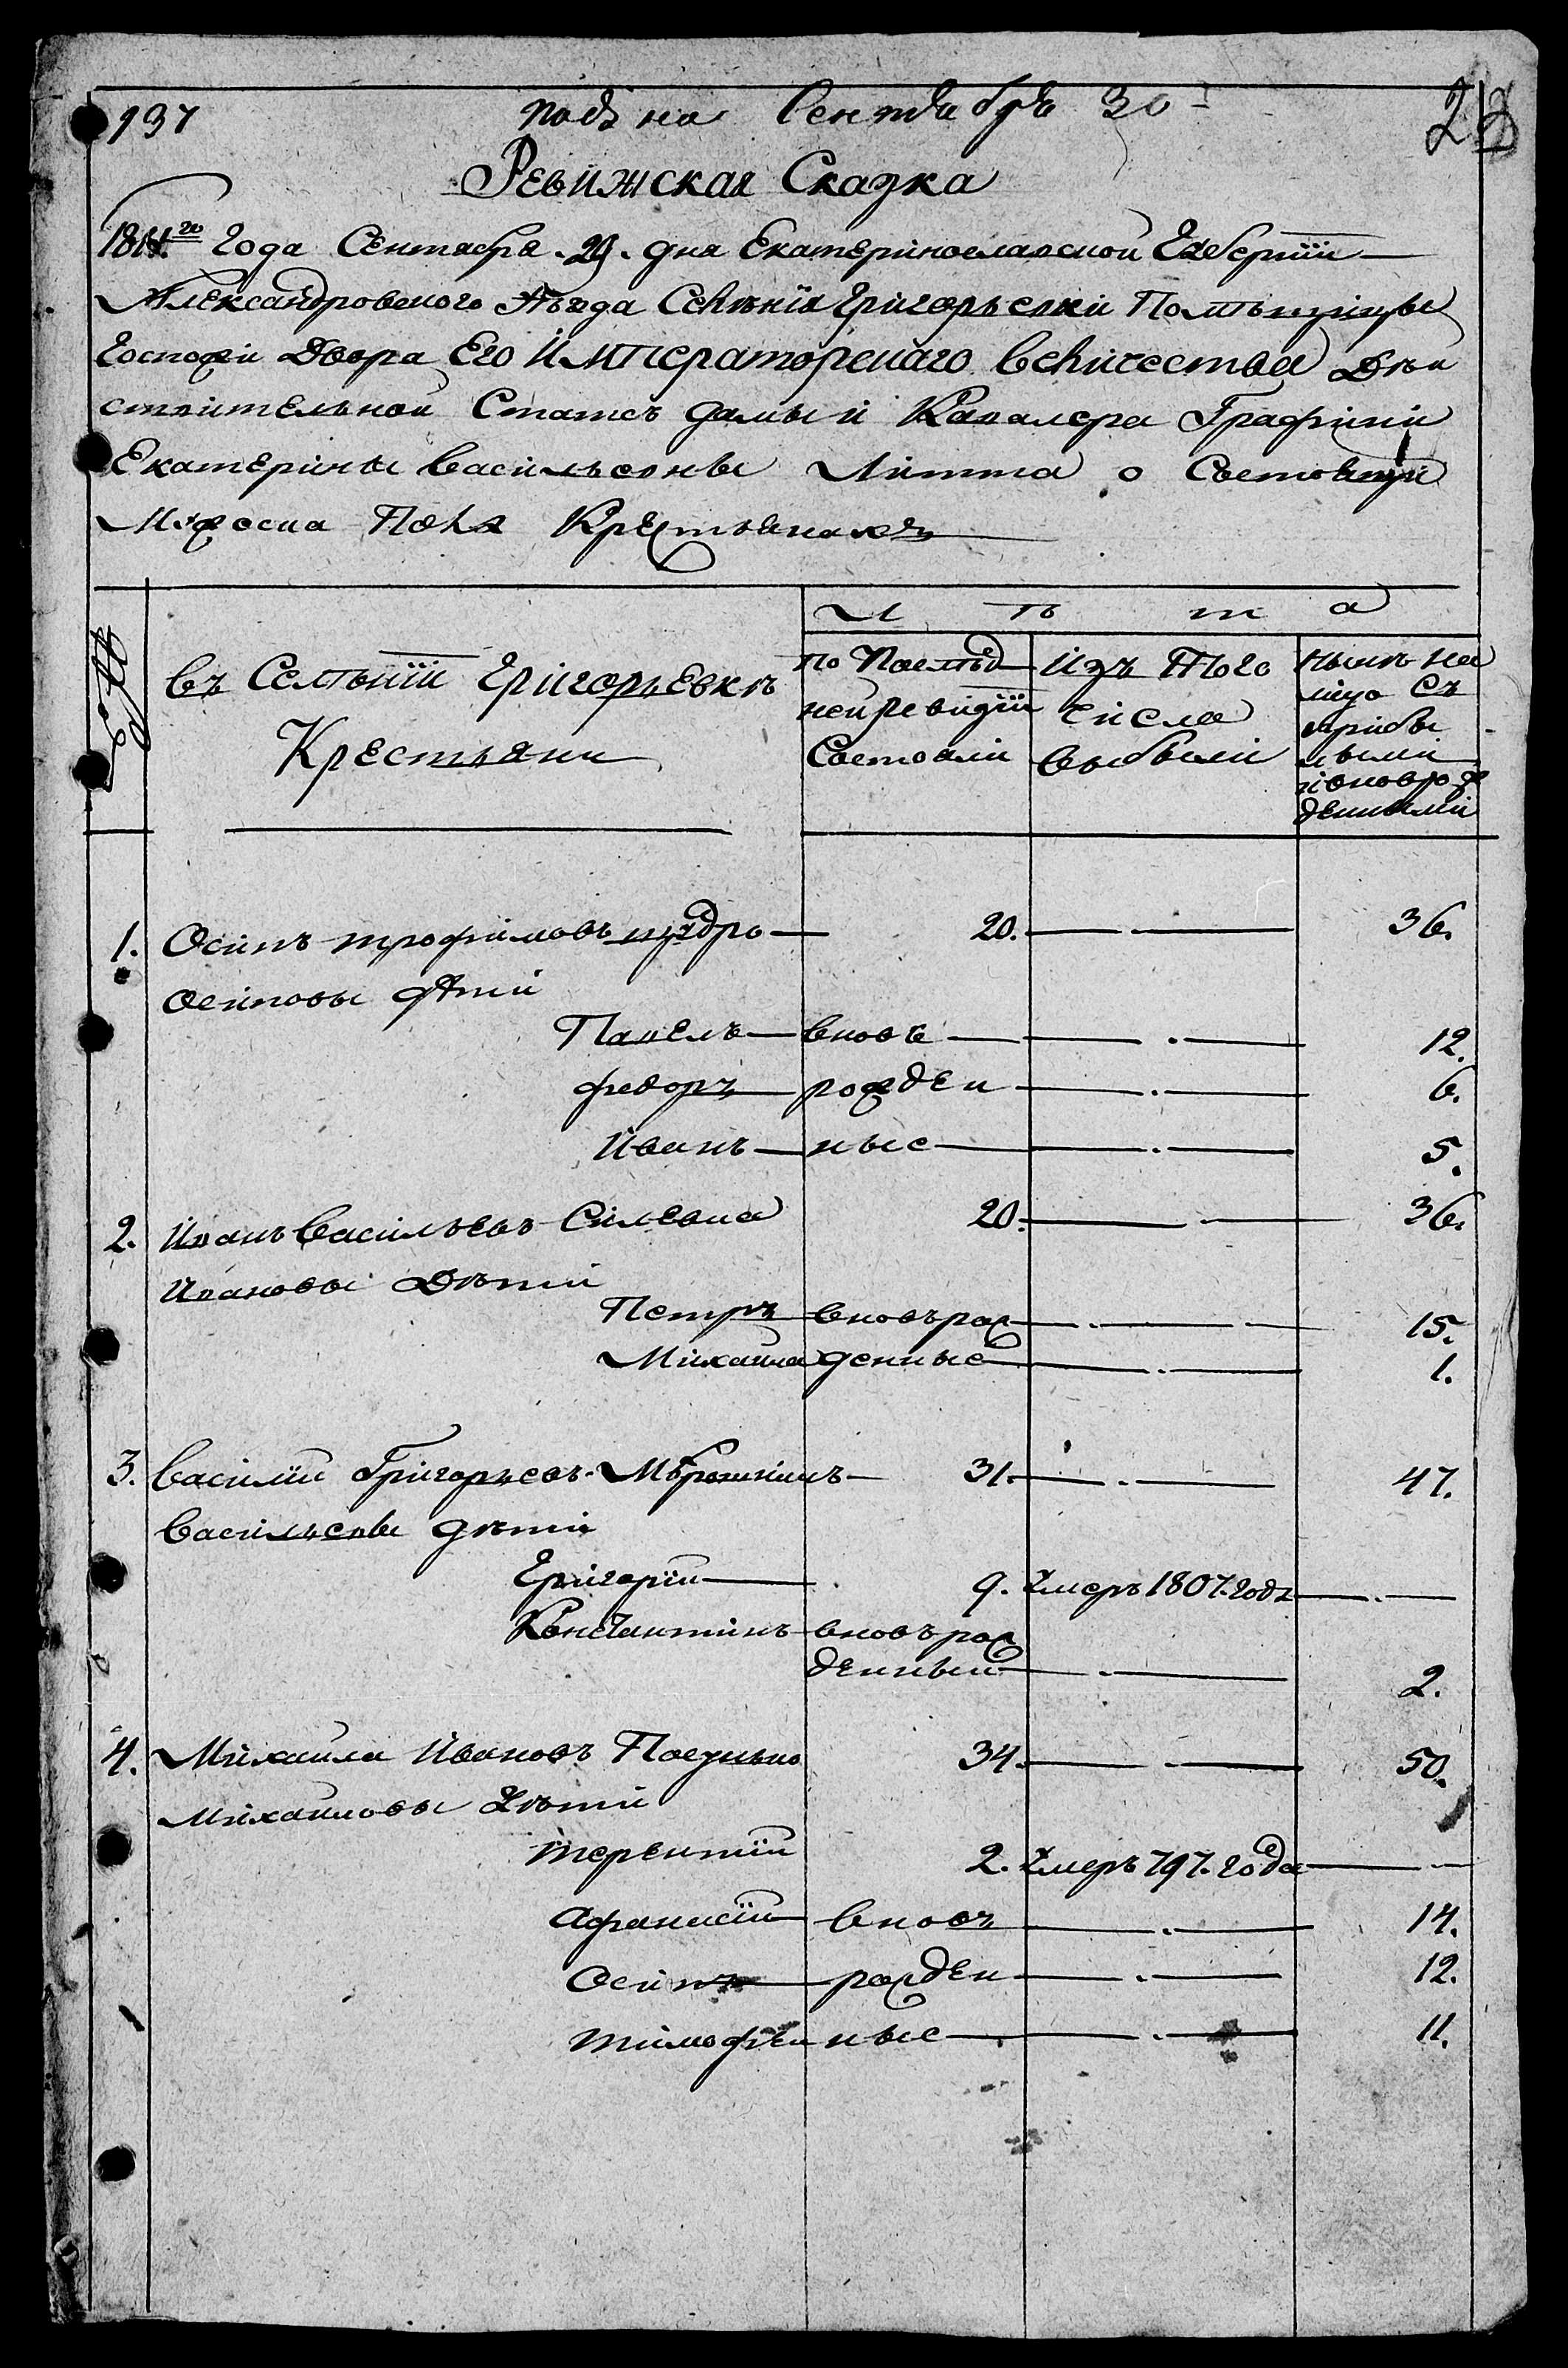 937 подана Сентября 30 2
Ревижская Сказка
1811.го Года Сентября 29. дня Екатеринославской Губернïи
Александровского Уѣзда Селѣнïя Григорьевки Помѣщицы
Госпожи Двора Его Императорскаго Величества Дѣй
ствительной Статсъ дамы и Кавалера Графини
Екатерины Васильевны Литта о Состоящихъ
Мужеска Пола Крестьянахъ
въ Селѣнïи Григорьевкѣ
Крестьяни
Л ѣ т а
по Послѣд
ней Ревизïи
Состояли
Изъ Того
Числа
выбыли
Нынѣ на
лицо Съ
прибы
лыми
и вновро ж
денными
1. Осипъ трофимовъ щедро 20. 36.
Осиповы дѣти
Павелъ вновь 12.
федоръ рожден 6.
Иванъ ные 5.
2. Иванъ Васильевъ Силевка 20. 36.
Ивановы Дѣти
Петръ вновърож 15.
Михаила денные 1.
3. Василïй Григорьевъ 31. 47.
Васильевы дѣти
Григорïй 9. Умеръ 1807. годъ
Констянтинъ вновърож
денный 2.
4. Михаила Ивановъ 34. 50.
Михаиловы Дѣти
терентïй 2. Умеръ 797. года
Афанасïй вновъ 14.
Осипъ рожден 12.
тимофѣй ные 11.